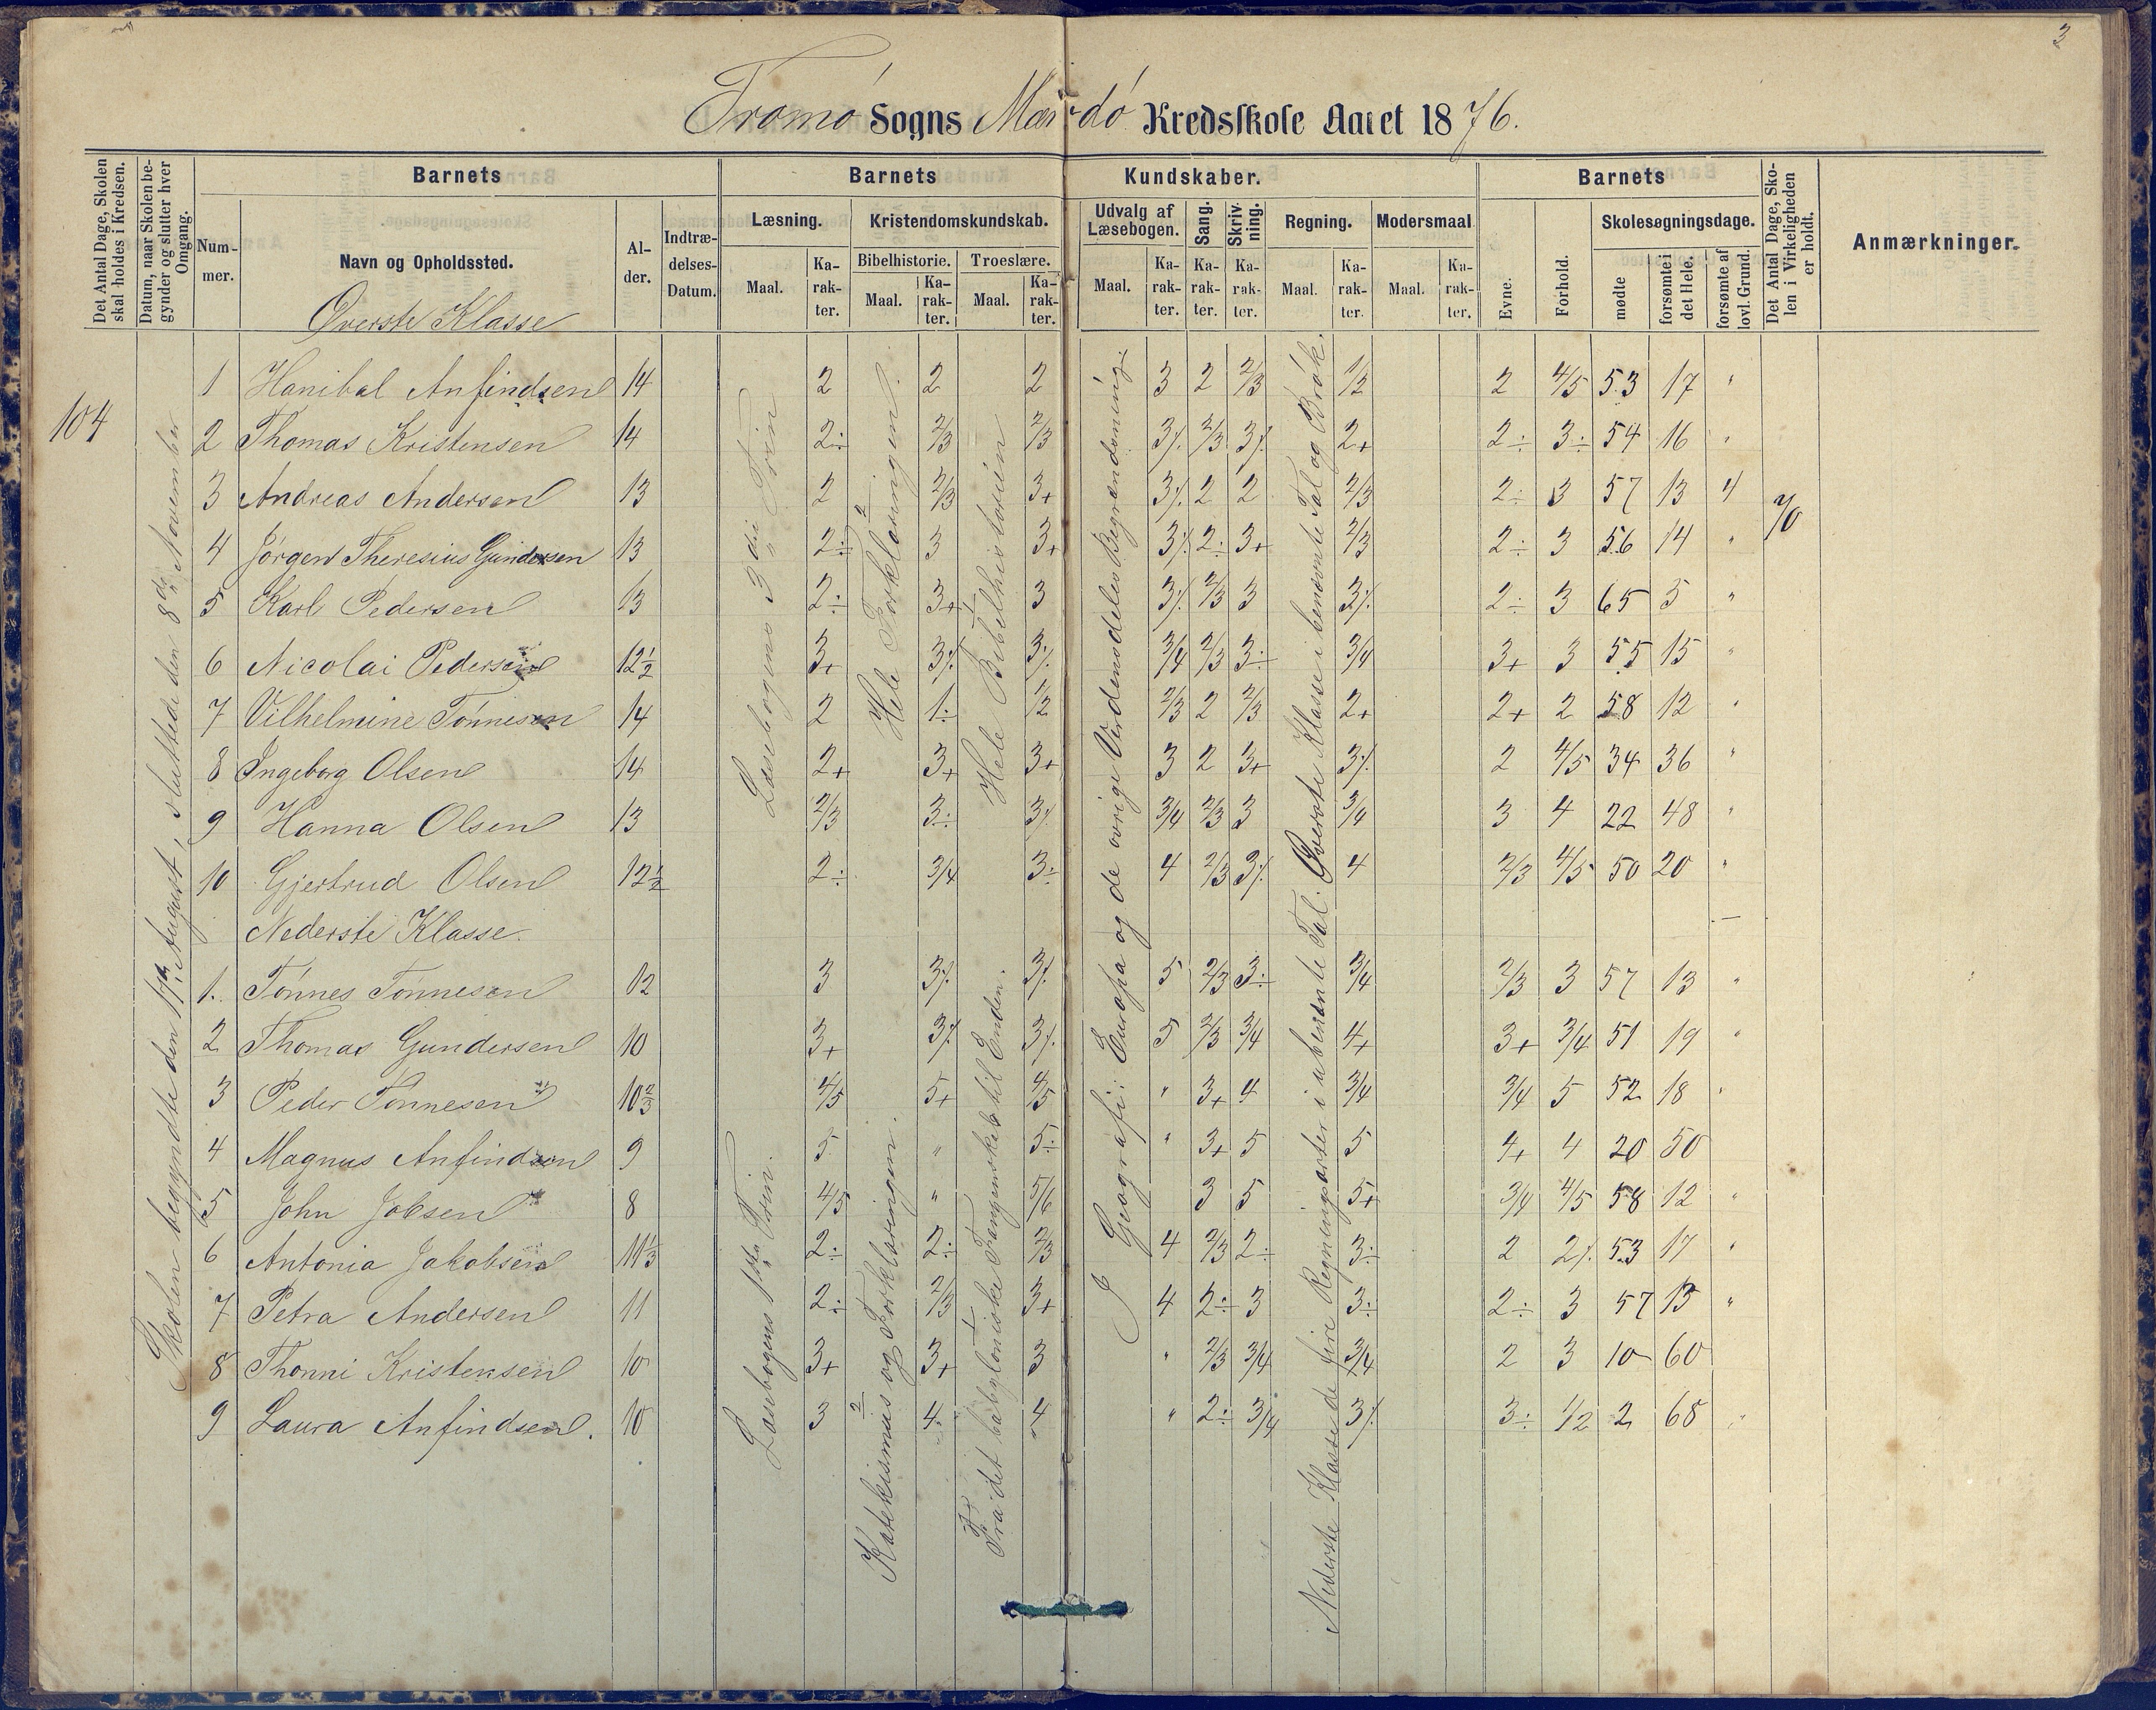 3
Tromø Sogns Mærdø Kredsskole Aaret 1876.
Det Antal Dage, Skolen skal holdes i Kredsen.
Datum, naar Skolen begynder og slutter hver Omgang.
Barnets
Nummer.
Navn og Opholdssted.
Alder.
Indtrædelses-Datum.
Barnets Kundskaber.
Læsning.
Maal.
Karakter.
Kristendomskundskab.
Bibelhistorie.
Maal.
Karakter.
Troeslære.
Maal.
Karakter.
Udvalg af Læsebogen.
Maal.
Karakter.
Sang.
Karakter.
Skrivning.
Karakter.
Regning.
Maal.
Karakter.
Modersmaal
Maal.
Karakter.
Barnets
Evne.
Forhold.
Skolesøgningsdage.
mødte
forsømte i det Hele.
forsømte af lovl. Grund.
Det Antal Dage, Skolen i Virkeligheden er holdt.
Anmærkninger.
104
Skolen begyndte den 17de August, sluttede den 8de November
70
Øverste Klasse
1 Hanibal Anfindsen 14 2 2 2 3 2 2/3 1/2 2 4/5 53 17 "
2 Thomas Kristensen 14 2÷ 2/3 2/3 3⁒ 2/3 3⁒ 2+ 2÷ 3÷ 54 16 "
3 Andreas Andersen 13 2 2/3 3+ 3⁒ 2 2 2/3 2÷ 3 57 13 4
4 Jørgen Theresius Gundersen 13 2÷ 3 3+ 3⁒ 2÷ 3+ 2/3 2÷ 3 56 14 "
5 Karl Pedersen 13 2÷ 3+ 3 3⁒ 2/3 3 3⁒ 2÷ 3 65 5 "
6 Nicolai Pedersen 12½ 3+ 3⁒ 3⁒ 3/4 2/3 3÷ 3/4 3+ 3 55 15 "
7 Vilhelmine Tønnesen 14 2 1÷ 1/2 2/3 2 2/3 2+ 2+ 2 58 12 "
8 Ingeborg Olsen 14 2+ 3+ 3+ 3 2 3+ 3⁒ 2 4/5 34 36 "
9 Hanna Olsen 13 2/3 3÷ 3⁒ 3/4 2/3 3 3/4 3 4 22 48 "
10 Gjertrud Olsen 12½ 2÷ 3/4 3÷ 4 2/3 3⁒ 4 2/3 4/5 50 20 "
Nederste Klasse.
1. Tønnes Tønnesen 12 3 3⁒ 3⁒ 5 2/3 3÷ 3/4 2/3 3 57 13 "
2 Thomas Gundersen 10 3+ 3⁒ 3⁒ 5 2/3 3/4 4+ 3+ 3/4 51 19 "
3 Peder Tønnesen 10⅔ 4/5 5+ 4/5 " 3+ 4 3/4 3/4 5 52 18 "
4 Magnus Anfindsen 9 5 " 5÷ " 3+ 5 5 4+ 4 20 50
5 John Jobsen 8 4/5 " 5/6 3 5 5+ 3/4 4/5 58 12 "
6 Antonia Jakobsen 11⅓ 2÷ 2÷ 2/3 4 2/3 2÷ 3÷ 2 2⁒ 53 17 "
7 Petra Andersen 11 2÷ 2/3 3+ 4 2÷ 3 3÷ 2÷ 3 57 13 "
8 Thonni Kristensen 10 3+ 3+ 3 " 2/3 3/4 3/4 2 3 10 60
9 Laura Anfindsen. 10 3 4÷ 4 " 2÷ 3/4 3⁒ 3÷ 1/2 2 68 "
Læsebogens 3die Trin
Læsebogens 1ste Trin.
2 Hele Forklaringen.
2 Katekismus og Forklaringen.
1 Hele Bibelhistorien
1 Fra det babyloniske Fangenskab til Enden.
I Geografi: Europa og de øvrige Verdensdeles Begrændsning
Øverste Klasse i benævnte Tal og Brøk.
Nederste Klasse de fire Regningsarter i ubenævnte Tal.